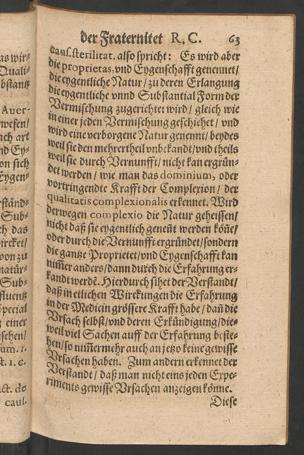 der Fraternitet R. C. 63
caus. sterilitat. also spricht: Es wird aber
die proprietas vnd Eygenschafft genennet/
die eygentliche Natur/ zu deren Erlangung
die eygentliche vnnd Substantial Form der
Vermischung zugerichtet wird/ gleich wie
in einer jeden Vermischung geschiehet/ vnd
wird eine verborgene Natur genennt/ beydes
weil sie den mehrertheil vnbekandt/ vnd theils
weil sie durch Vernunfft/ nicht kan ergrün-
det werden/ wie man das dominium, oder
vortringendte Krafft der Complexion/ der
qualitatis complexionalis erkennet. Wird
derwegen complexio die Natur geheissen/
nicht daß sie eygentlich genent werden köñe/
oder durch die Vernunfft ergründet/ sondern
die gantze Proprietet/ vnd Eygenschafft kan
nim̃er anders/ dann durch die Erfahrung er-
kandt werdẽ. Hierdurch sihet der Verstandt/
daß in etlichen Würckungen die Erfahrung
in der Medicin grössere Krafft habe/ dañ die
Vrsach selbst/ vnd deren Erkündigung/ die-
weil viel Sachen auff der Erfahrung beste-
hen/ so nim̃ermehr auch an jetzo keine gewisse
Vrsachen haben. Zum andern erkennet der
Verstandt/ daß man nicht eins jeden Expe-
riments gewisse Vrsachen anzeigen könne.
Diese